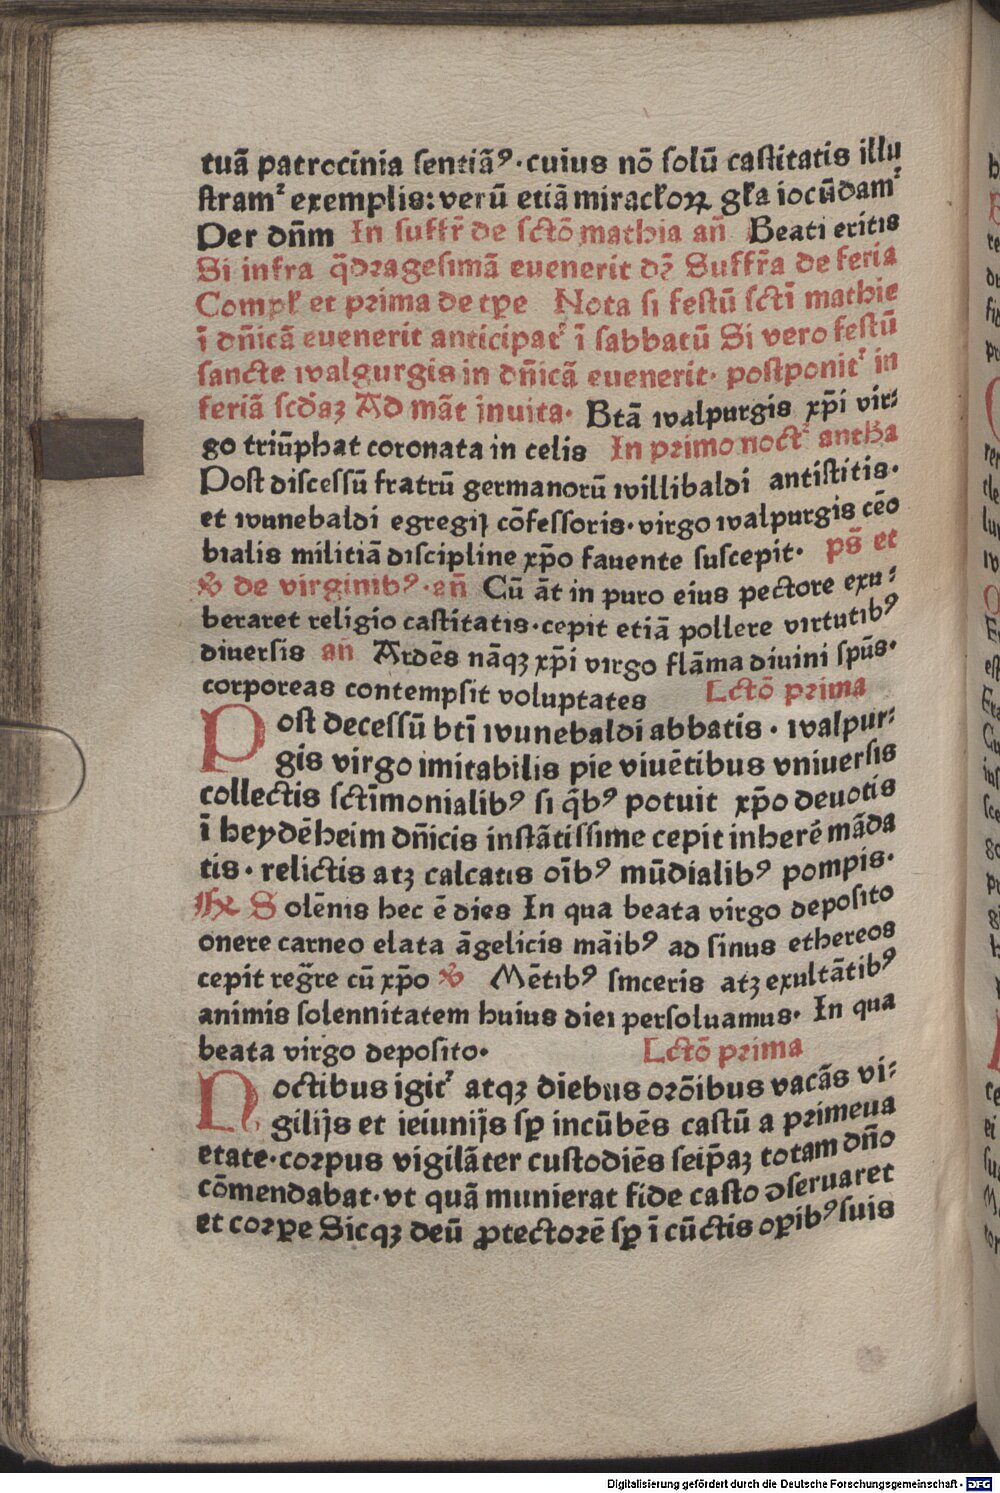 tuā patrocinia sentiāꝰ·cuius nō solū castitatis illu
stramᷣ exemplis: verū etiā mirackoꝝ gka iocūdamᷣ
Per dn̄m In suffr̄ de sctō mathia an̄ Beati eritis
Si infra q̄dragesimā euenerit dr̄ Suffr̄a de feria
Compk et prima de tꝑe Nota si festū sctī mathie
ī dn̄icā euenerit anticipatᷣ ī sabbatū Si vero festū
sancte walgurgis in dn̄icā euenerit· postponitᷣ in
feriā scd̄aꝫ Ad māt inuita· Btā walpurgis xp̄i vir⸗
go triūphat coronata in celis In primo noctᷣ antha
Post discessū fratrū germanorū willibaldi antistitis·
et wunebaldi egregij cōfessoris·virgo walpurgis cēo
bialis militiā discipline xp̄o fauente suscepit· ps̄ et
℣ de virginibꝰ·an̄ Cū āt in puro eius pectore exu⸗
beraret religio castitatis·cepit etiā pollere virtutibꝰ
diuersis an̄ Ardēs nāqꝫ xp̄i virgo flāma diuini spūs·
corporeas contempsit voluptates Lctō prima
Post decessū btī wunebaldi abbatis · walpur⸗
gis virgo imitabilis pie viuētibus vniuersis
collectis sctīmonialibꝰ si q̄bꝰ potuit xp̄o deuotis
ī heydēheim dn̄icis instātissime cepit inherē māda
tis· relictis atꝫ calcatis oībꝰ mūdialibꝰ pompis·
℟ Solēnis hec ē dies In qua beata virgo deposito
onere carneo elata āgelicis māibꝰ ad sinus ethereos
cepit regr̄e cū xp̄o ℣ Mētibꝰ sinceris atꝫ exultātibꝰ
animis solennitatem huius diei persoluamus· In qua
beata virgo deposito· Lctō prima
Noctibus igitᷣ atqꝫ diebus orōibus vacās vi⸗
gilijs et ieiunijs sꝑ incūbēs castū a primeua
etate·corpus vigilāter custodiēs seip̄aꝫ totam dn̄o
cōmendabat·vt quā munierat fide casto ꝯseruaret
et corꝑe Sicqꝫ deū ꝓtectorē sꝑ ī cūctis oꝑibꝰ suis
Digitalisierung gefördert durch die Deutsche Forschungsgemeinschaft · DFG